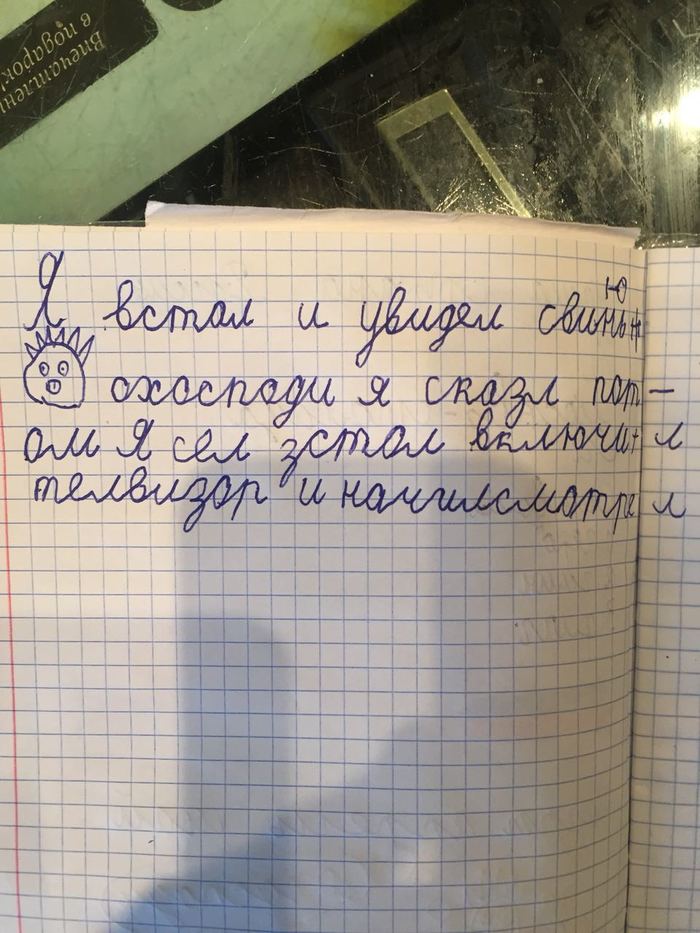 Впечатлени
в подарок!
Я встал и увидел свинью
охоспади я сказл пот-
ом я сел зстол включил
телвизор и начилсматрел